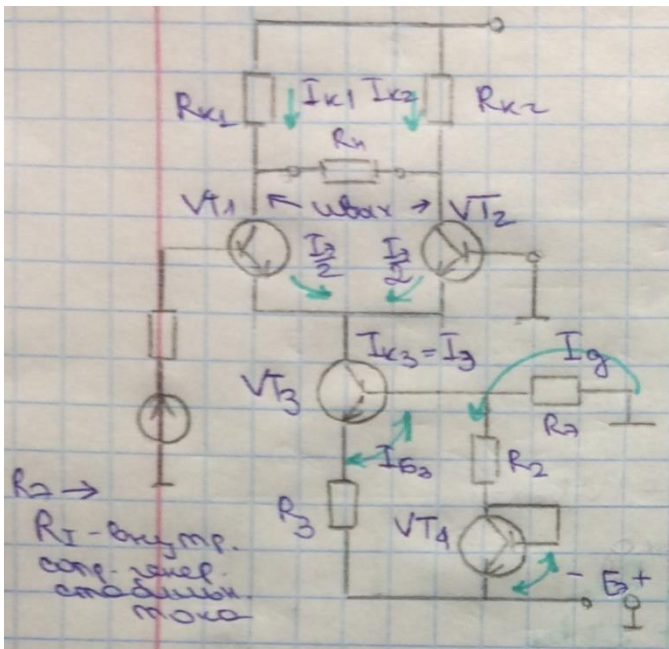 Rк1
Iк1
Iк2
Rк2
Rн
VT1
uвых
VT2
Iэ/2
Iэ/2
Iк3 = Iэ
Iд
VT3
R2
Iб3
R3
VT4
- E +
RI - внутр.
сопр. генер.
стабильн.
тока